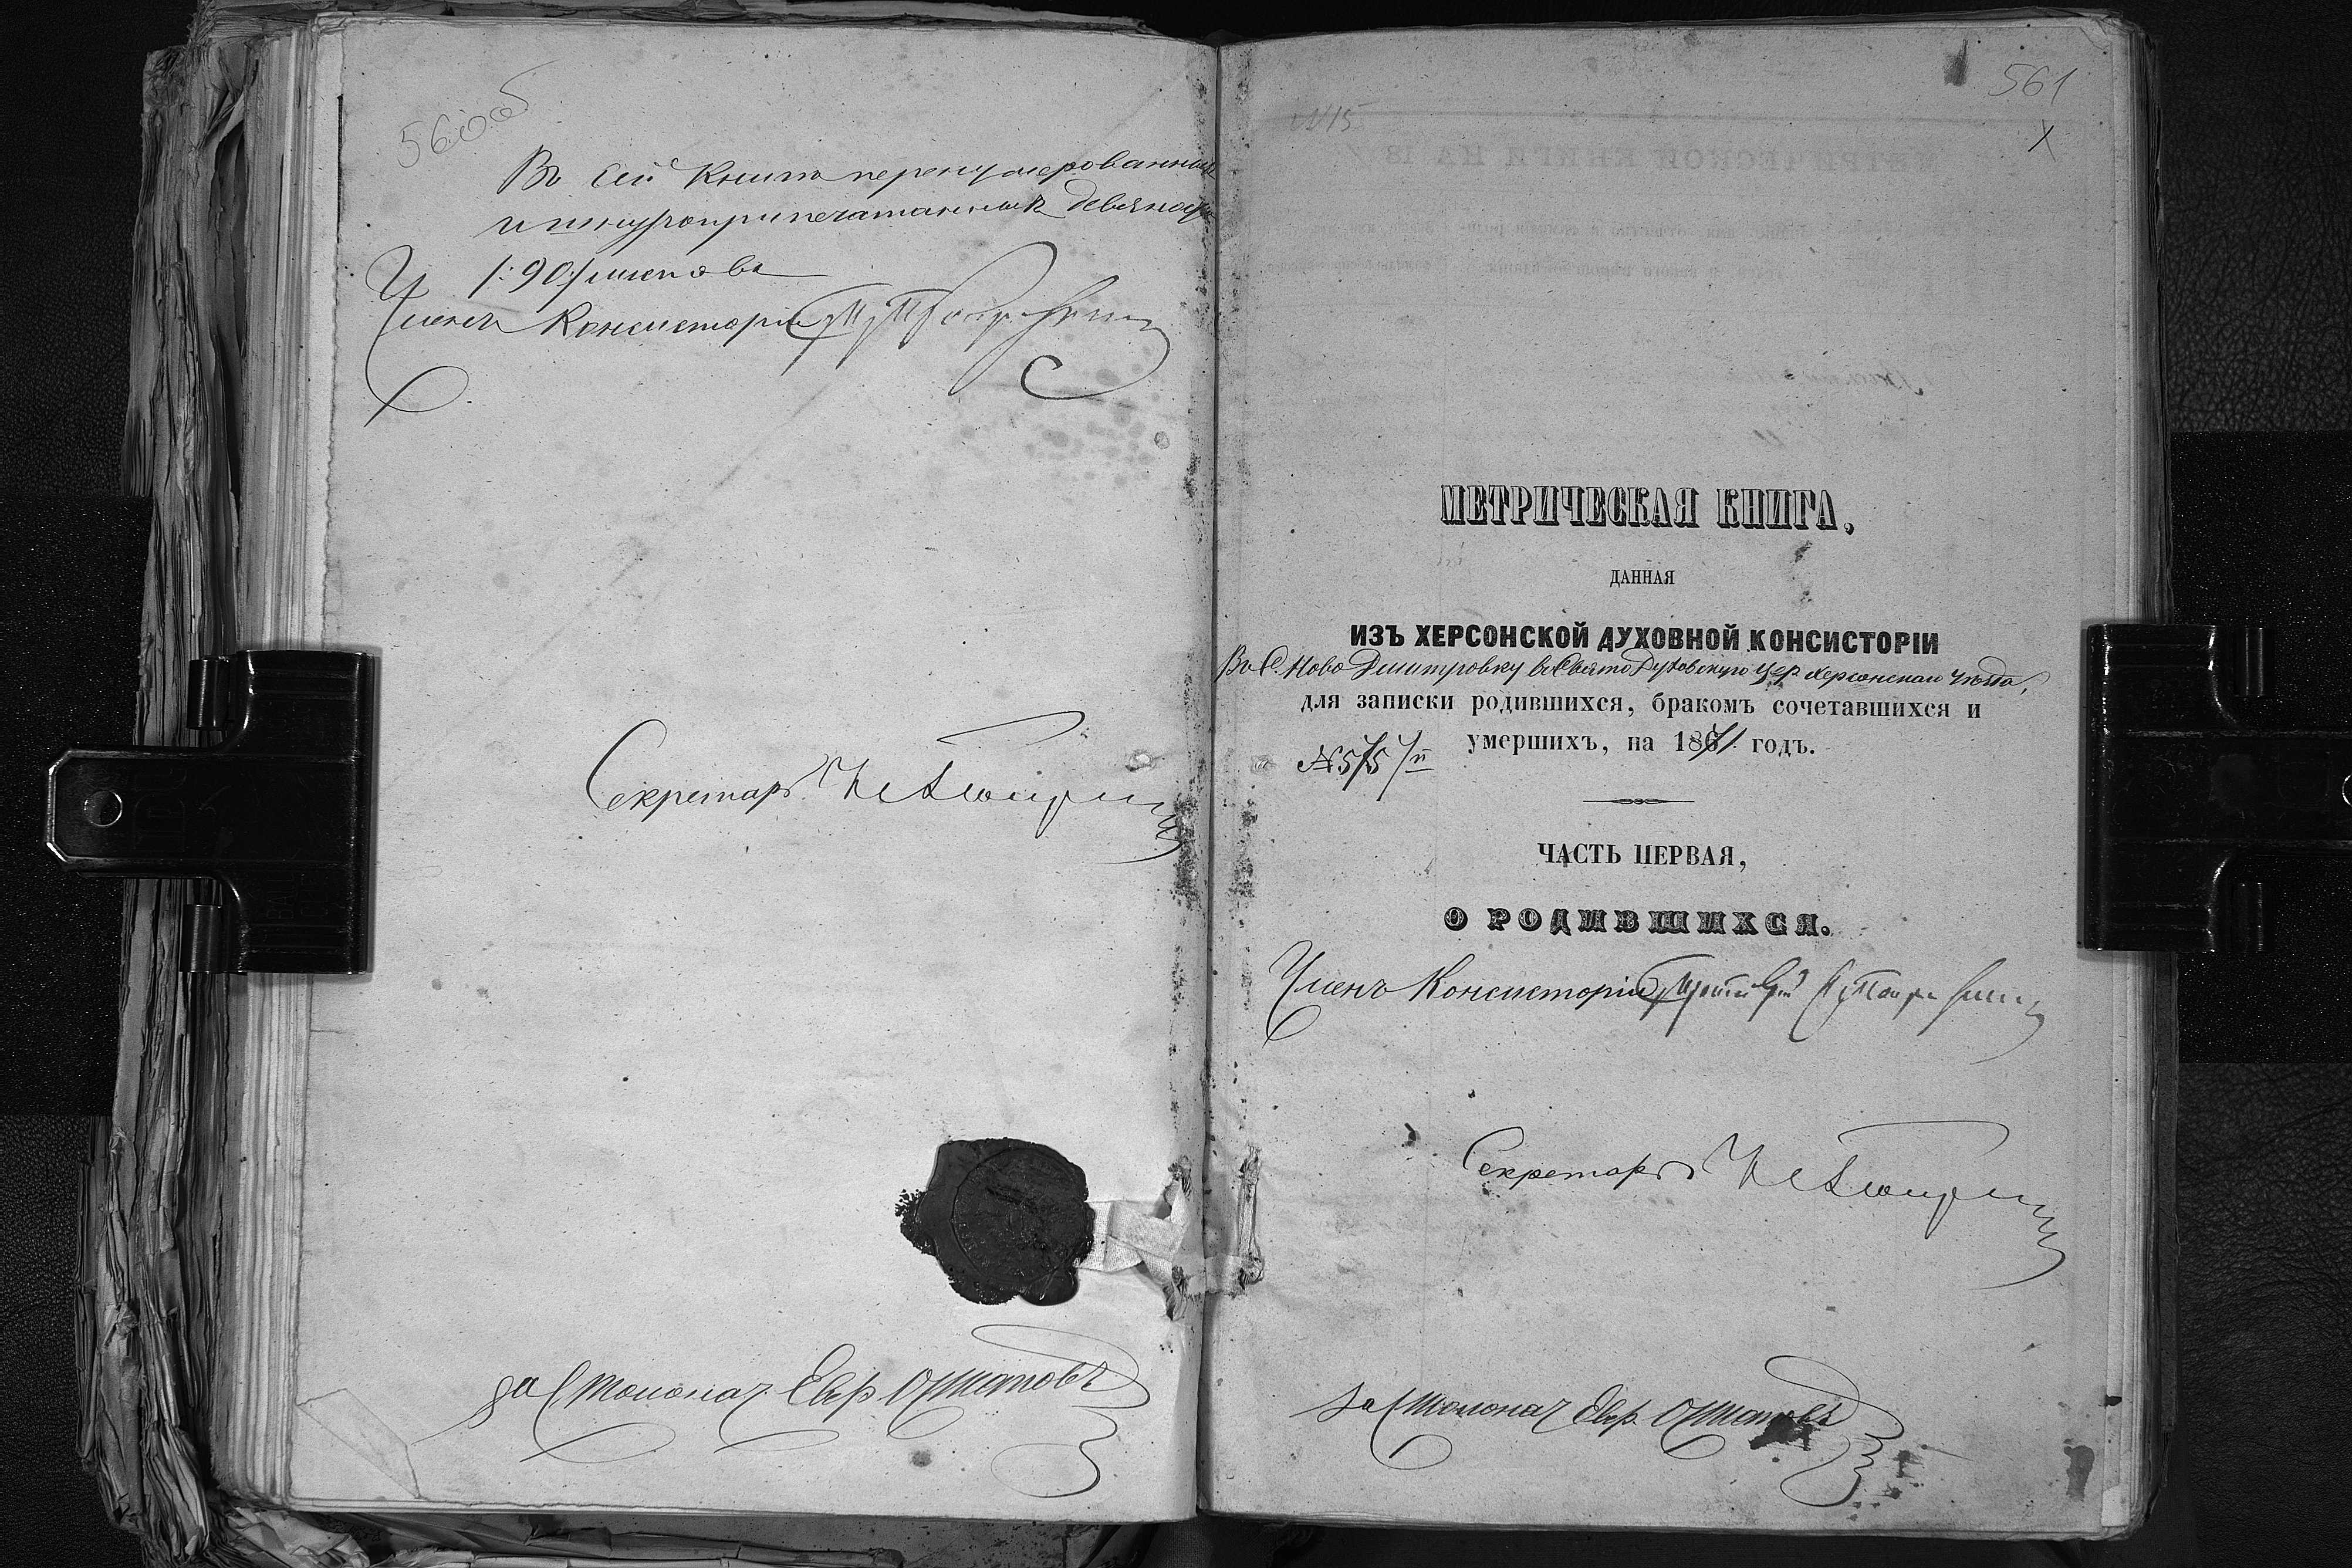 560об
Въ сей Книгѣ перенумерованныхъ
и шнуроприпечатанныхъ девяносто
/:90:/ листовъ
Членъ Консисторіи
Секретарь
за Столонач. Евр. Осиповъ
561
N15
МЕТРИЧЕСКАЯ КНИГА,
ДАННАЯ
ИЗЪ ХЕРСОНСКОЙ ДУХОВНОЙ КОНСИСТОРІИ
Въ С. Ново Дмитровку въ Свято Духовскую Цер. Херсонскаго Уѣзда,
для записки родившихся, бракомъ сочетавшихся и
умершихъ, на 1871 годъ.
№ 575
ЧАСТЬ ПЕРВАЯ,
О РОДИВШИХСЯ.
Членъ Консисторіи
Секретарь
за Столонач. Евр. Осиповъ